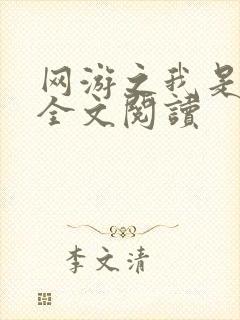 网游之我是
全文閱讀
李文清